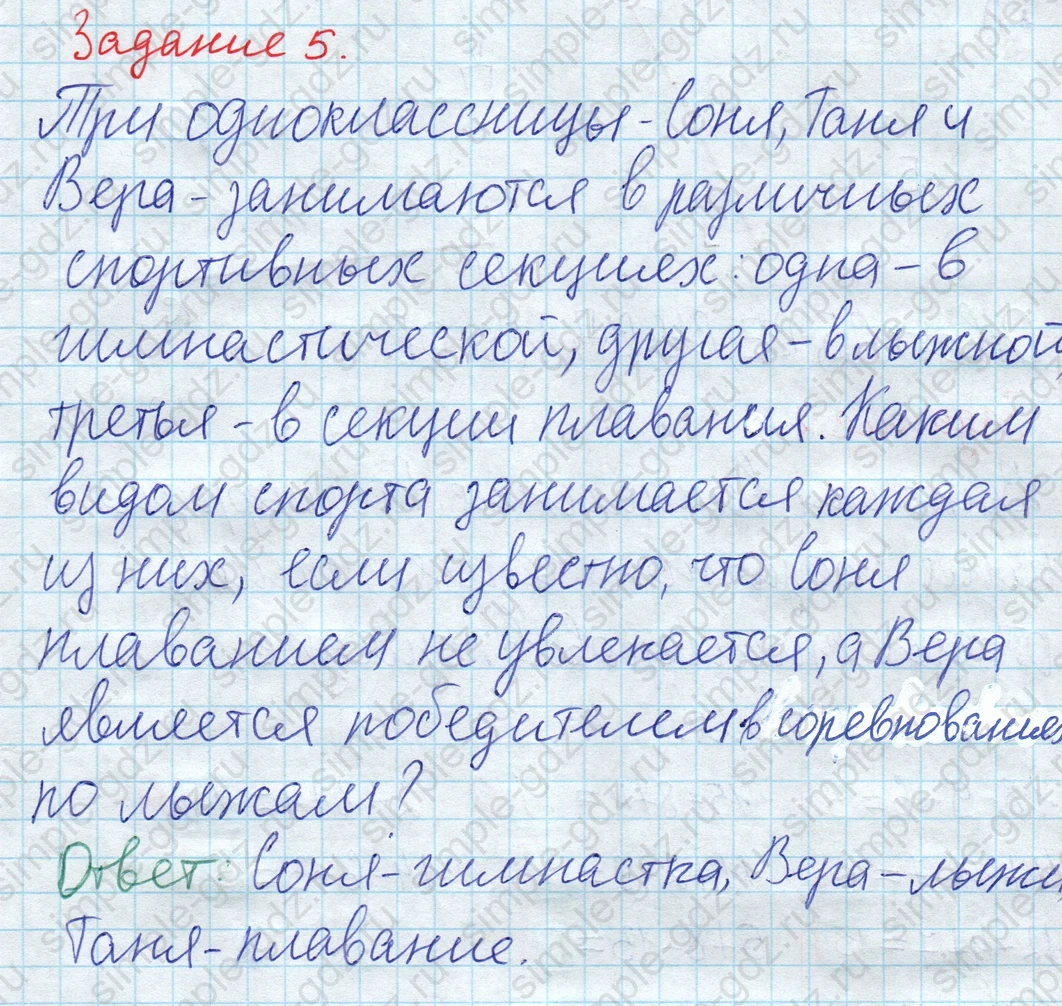 Задание 5.
Три одноклассницы - Соня, Таня и
Вера - занимаются в различных
спортивных секциях: одна - в
гимнастической, другая - в лыжной,
третья - в секции плавания. Каким
видом спорта занимается каждая
из них, если известно, что Соня
плаванием не увлекается, а Вера
является победителем в соревнованиях
по лыжам?
Ответ: Соня - гимнастка, Вера - лыжи,
Таня - плавание.